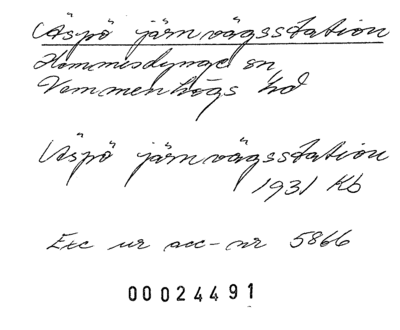 Äspö järnvägsstation
Hommisdynge sn
Vemmenhögs hd
Äspö järnvägsstation
1931 Kb
Exc ur acc-nr 5866
00024491